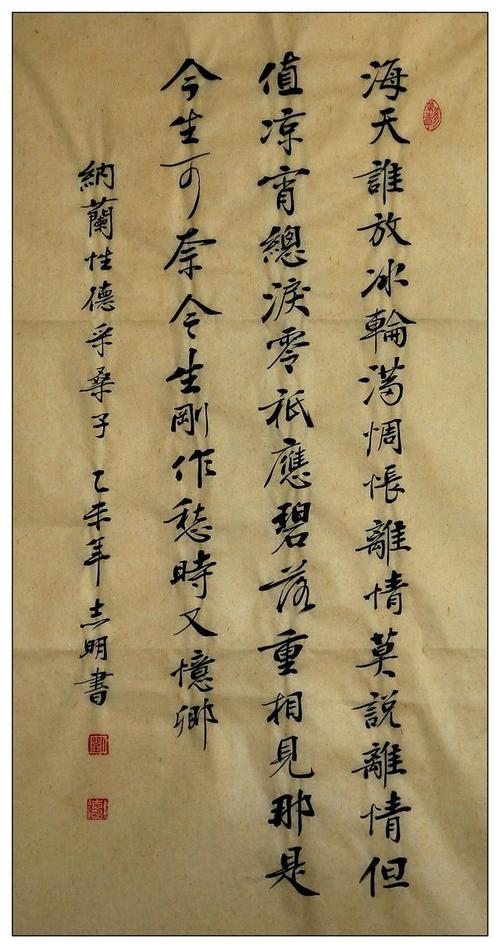 海天誰放冰輪滿惆悵離情莫説離情但
值凉宵總淚零祇應碧落重相見那是
今生可奈今生剛作愁時又憶卿
納蘭性德采桑子乙未年志明書